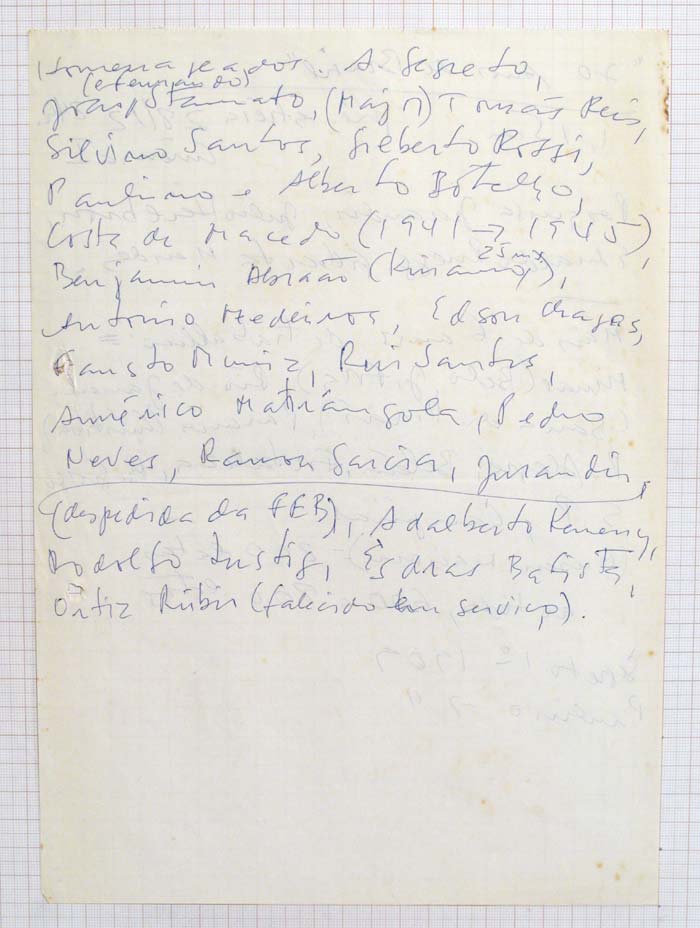 Homenageados: A Segreto,
João Stamato, (Major) Tomás Reis,
Silvino Santos, Gilberto Rossi,
Paulino e Alberto Botelho,
Costa de Macedo (1941 → 1945),
25 mx
Benjamin Abraão (Kinamo),
Antonio Medeiros, Edson Chagas,
Fausto Muniz, Rui Santos,
Américo Matrângola, Pedro
Neves, Ramon Garcia, Jurandir,
(despedida da FEB), Adalberto Kemeny,
Rodolfo Lustig, Esdras Batista,
Ortiz Rubin (falecido em serviço).